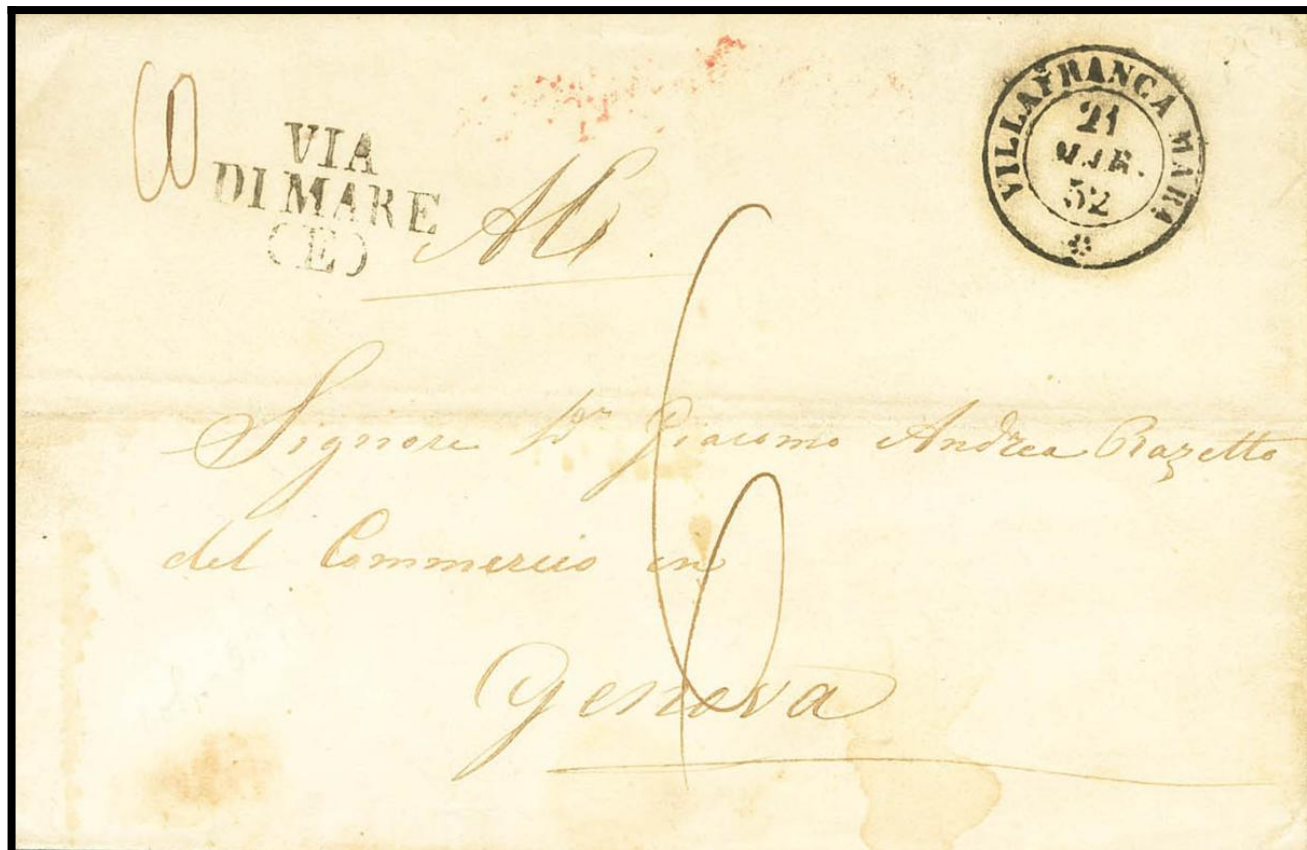 VIA
DI MARE
(E)
VILLAFRANCA MAR.
21
MAR.
52
6
Signore Sr Giacomo Andrea Razetto
del Commercio in
Genova